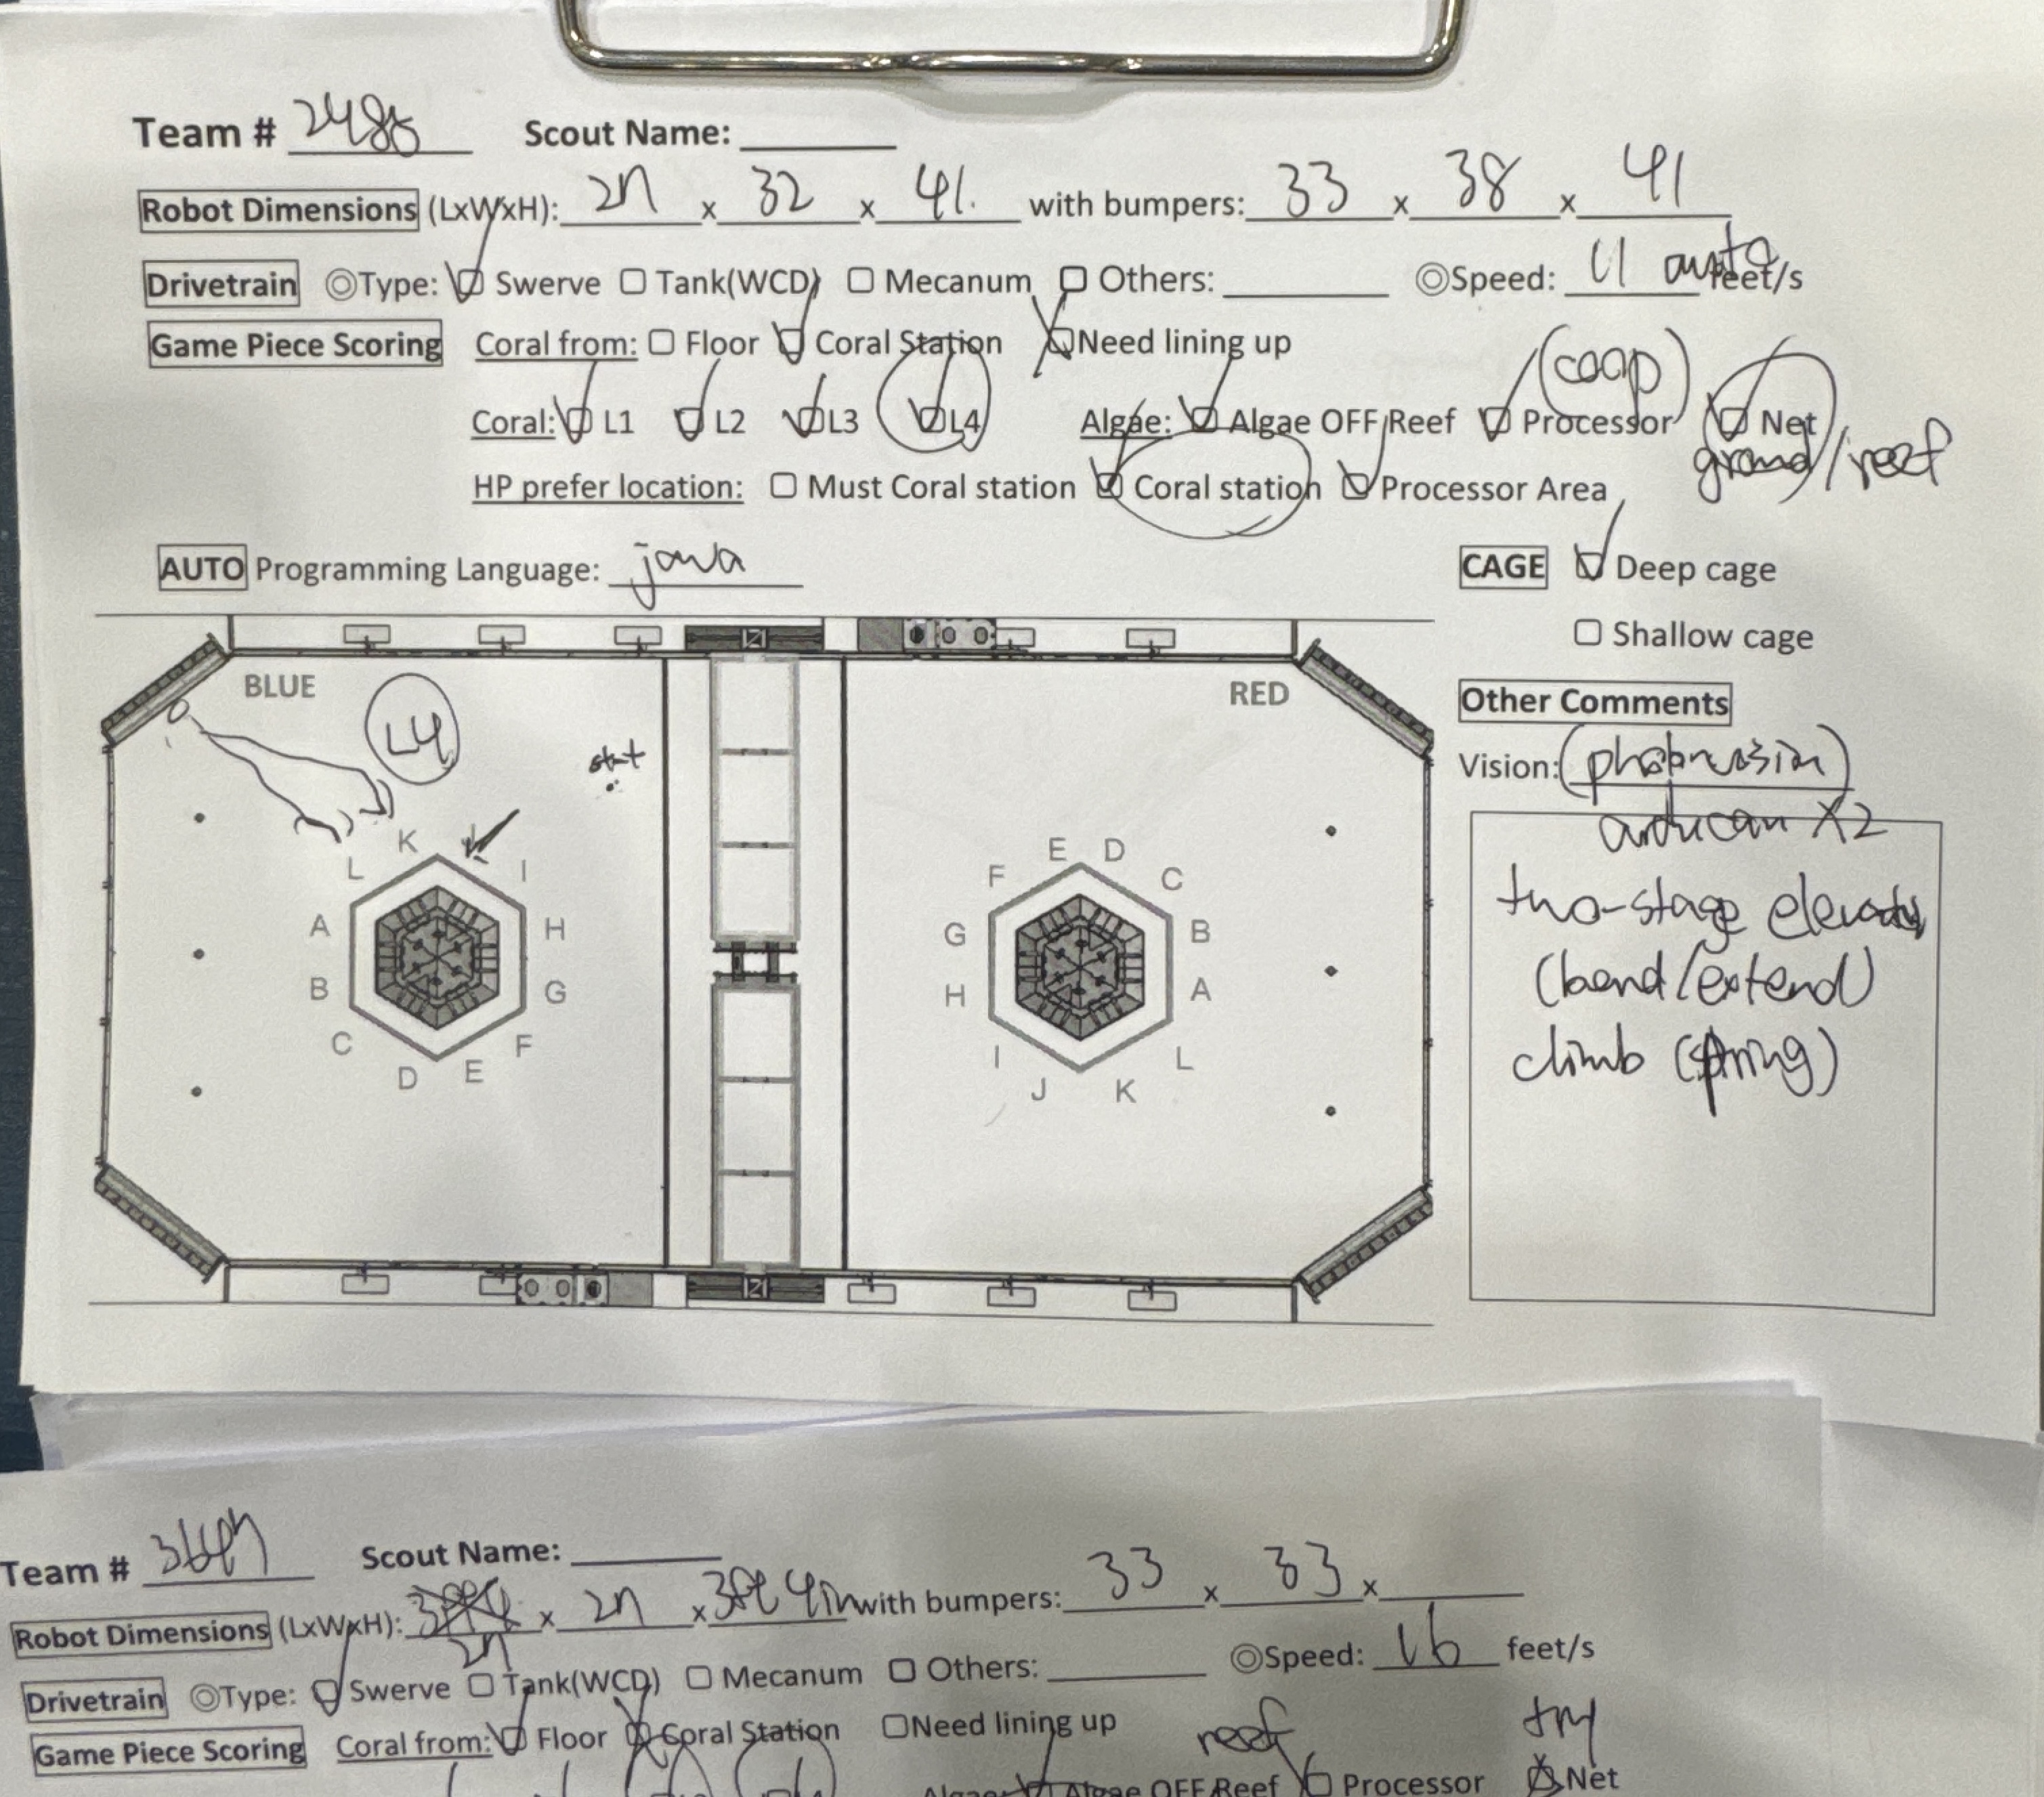 Team # 2485 Scout Name:
Robot Dimensions (LxWxH): 27 x 32 x 41. with bumpers: 33 x 38 x 41
Drivetrain ◎Type: ☑ Swerve ☐ Tank(WCD) ☐ Mecanum ☐ Others: ◎Speed: 11 auto feet/s
Game Piece Scoring Coral from: ☐ Floor ☑ Coral Station ☒Need lining up
(coop)
Coral: ☑ L1 ☑ L2 ☑ L3 ☑ L4 Algae: ☑ Algae OFF Reef ☑ Processor ☑ Net
ground/reef
HP prefer location: ☐ Must Coral station ☑ Coral station ☑ Processor Area
AUTO Programming Language: java
CAGE ☑ Deep cage
☐ Shallow cage
BLUE
L4
start
RED
K
L
I
A
H
B
G
C
F
D
E
E
D
F
C
G
B
H
A
I
L
J
K
Other Comments
Vision: (photonvision)
arducam X2
two-stage elevator
(bend/extend)
climb (string)
Team # 3647 Scout Name:
Robot Dimensions (LxWxH): 27 x 27 x 3ft 4in with bumpers: 33 x 33 x
Drivetrain ◎Type: ☑ Swerve ☐ Tank(WCD) ☐ Mecanum ☐ Others: ◎Speed: 16 feet/s
Game Piece Scoring Coral from: ☑ Floor ☒ Coral Station ☐Need lining up
reef
try
Algae: ☑ Algae OFF Reef ☐ Processor ☒ Net